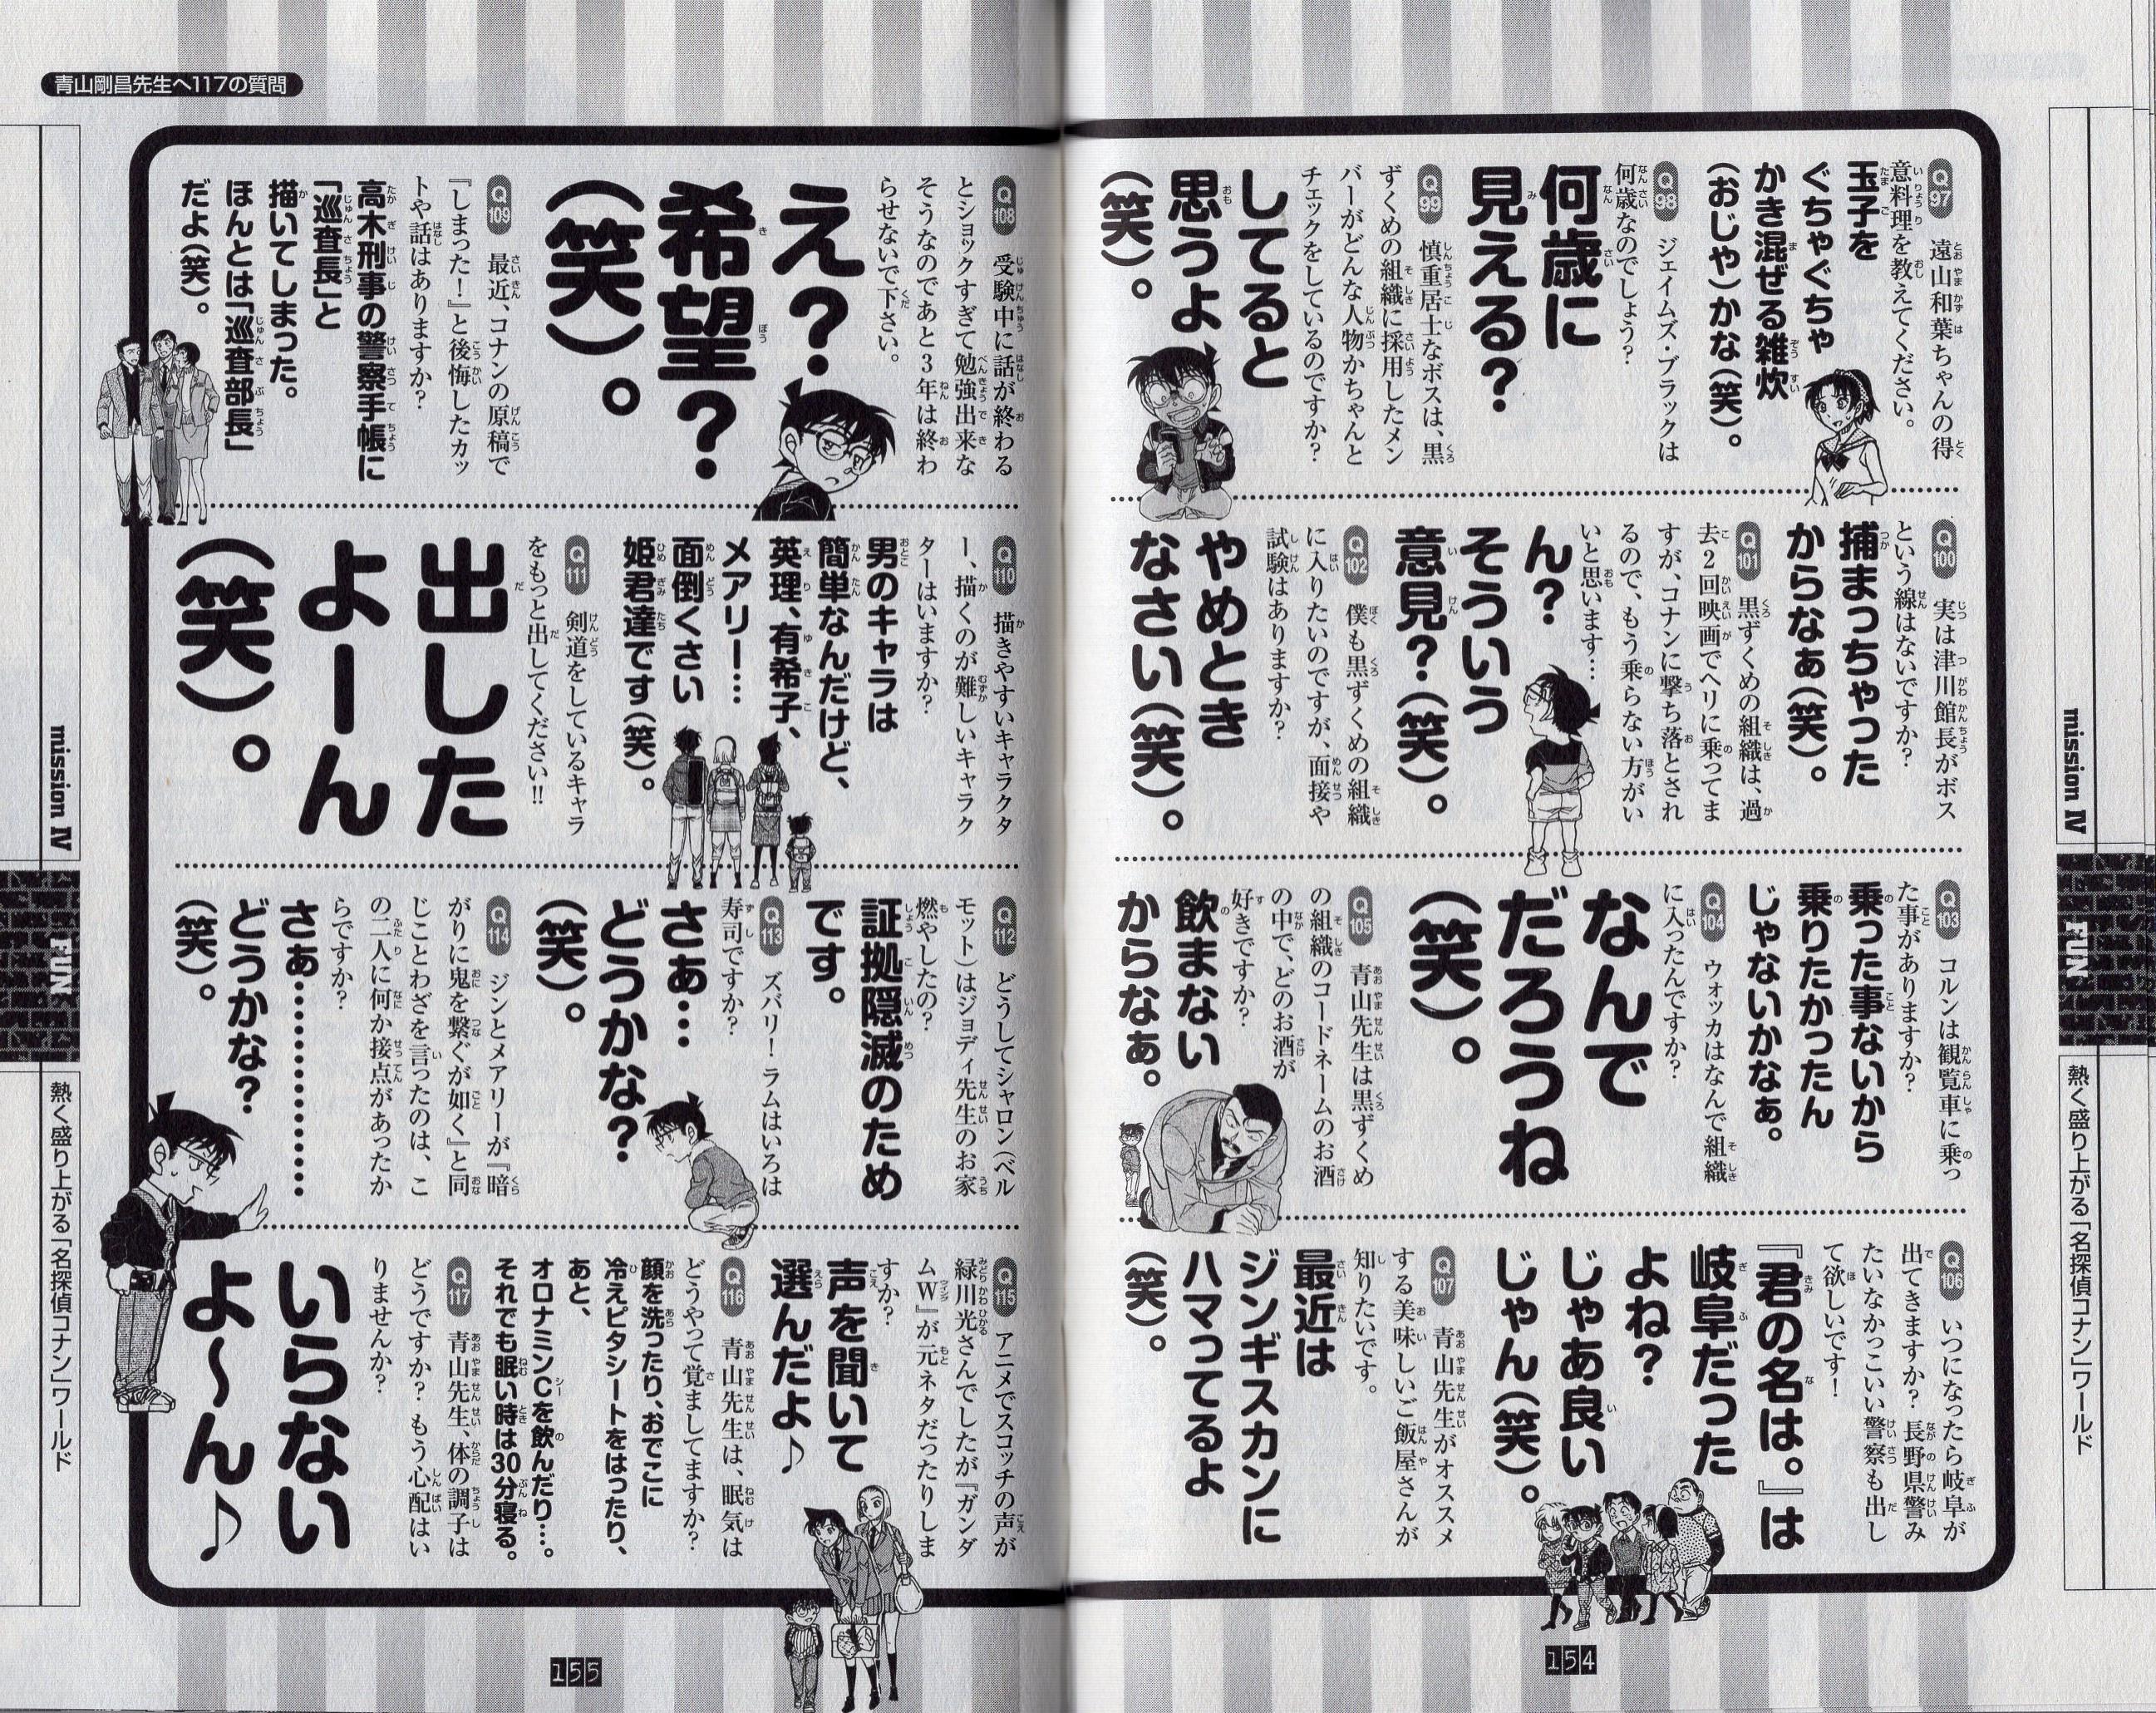 Q97 遠山和葉ちゃんの得
意料理を教えてください。
玉子を
ぐちゃぐちゃ
かき混ぜる雑炊
(おじや)かな(笑)。
Q98 ジェイムズ・ブラックは
何歳なのでしょう?
何歳に
見える?
Q99 慎重居士なボスは、黒
ずくめの組織に採用したメン
バーがどんな人物かちゃんと
チェックをしているのですか?
してると
思うよ
(笑)。
Q100 実は津川館長がボス
という線はないですか?
捕まっちゃった
からなぁ(笑)。
Q101 黒ずくめの組織は、過
去2回映画でヘリに乗ってま
すが、コナンに撃ち落とされ
るので、もう乗らない方がい
いと思います…
ん?
そういう
意見?(笑)。
Q102 僕も黒ずくめの組織
に入りたいのですが、面接や
試験はありますか?
やめとき
なさい(笑)。
Q103 コルンは観覧車に乗っ
た事がありますか?
乗った事ないから
乗りたかったん
じゃないかなぁ。
Q104 ウォッカはなんで組織
に入ったんですか?
なんで
だろうね
(笑)。
Q105 青山先生は黒ずくめ
の組織のコードネームのお酒
の中で、どのお酒が
好きですか?
飲まない
からなぁ。
Q106 いつになったら岐阜が
出てきますか?長野県警み
たいなかっこいい警察も出し
て欲しいです!
『君の名は。』は
岐阜だった
よね?
じゃあ良い
じゃん(笑)。
Q107 青山先生がオススメ
する美味しいご飯屋さんが
知りたいです。
最近は
ジンギスカンに
ハマってるよ
(笑)。
154
mission Ⅳ
FUN
熱く盛り上がる「名探偵コナン」ワールド
青山剛昌先生へ117の質問
Q108 受験中に話が終わる
とショックすぎて勉強出来な
そうなのであと3年は終わ
らせないで下さい。
え?
希望?
(笑)。
Q109 最近、コナンの原稿で
『しまった!』と後悔したカッ
トや話はありますか?
高木刑事の警察手帳に
「巡査長」と
描いてしまった。
ほんとは「巡査部長」
だよ(笑)。
Q110 描きやすいキャラクタ
ー、描くのが難しいキャラク
ターはいますか?
男のキャラは
簡単なんだけど、
英理、有希子、
メアリー…
面倒くさい
姫君達です(笑)。
Q111 剣道をしているキャラ
をもっと出してください!!
出した
よーん
(笑)。
Q112 どうしてシャロン(ベル
モット)はジョディ先生のお家
燃やしたの?
証拠隠滅のため
です。
Q113 ズバリ!ラムはいろは
寿司ですか?
さあ…
どうかな?
(笑)。
Q114 ジンとメアリーが『暗
がりに鬼を繋ぐが如く』と同
じことわざを言ったのは、こ
の二人に何か接点があったか
らですか?
さあ…………
どうかな?
(笑)。
Q115 アニメでスコッチの声が
緑川光さんでしたが『ガンダ
ムW』が元ネタだったりしま
すか?
声を聞いて
選んだよ♪
Q116 青山先生は、眠気は
どうやって覚ましてますか?
顔を洗ったり、おでこに
冷えピタシートをはったり、
あと、
オロナミンCを飲んだり…。
それでも眠い時は30分寝る。
Q117 青山先生、体の調子は
どうですか?もう心配はい
りませんか?
いらない
よ〜ん♪
155
mission Ⅳ
FUN
熱く盛り上がる「名探偵コナン」ワールド